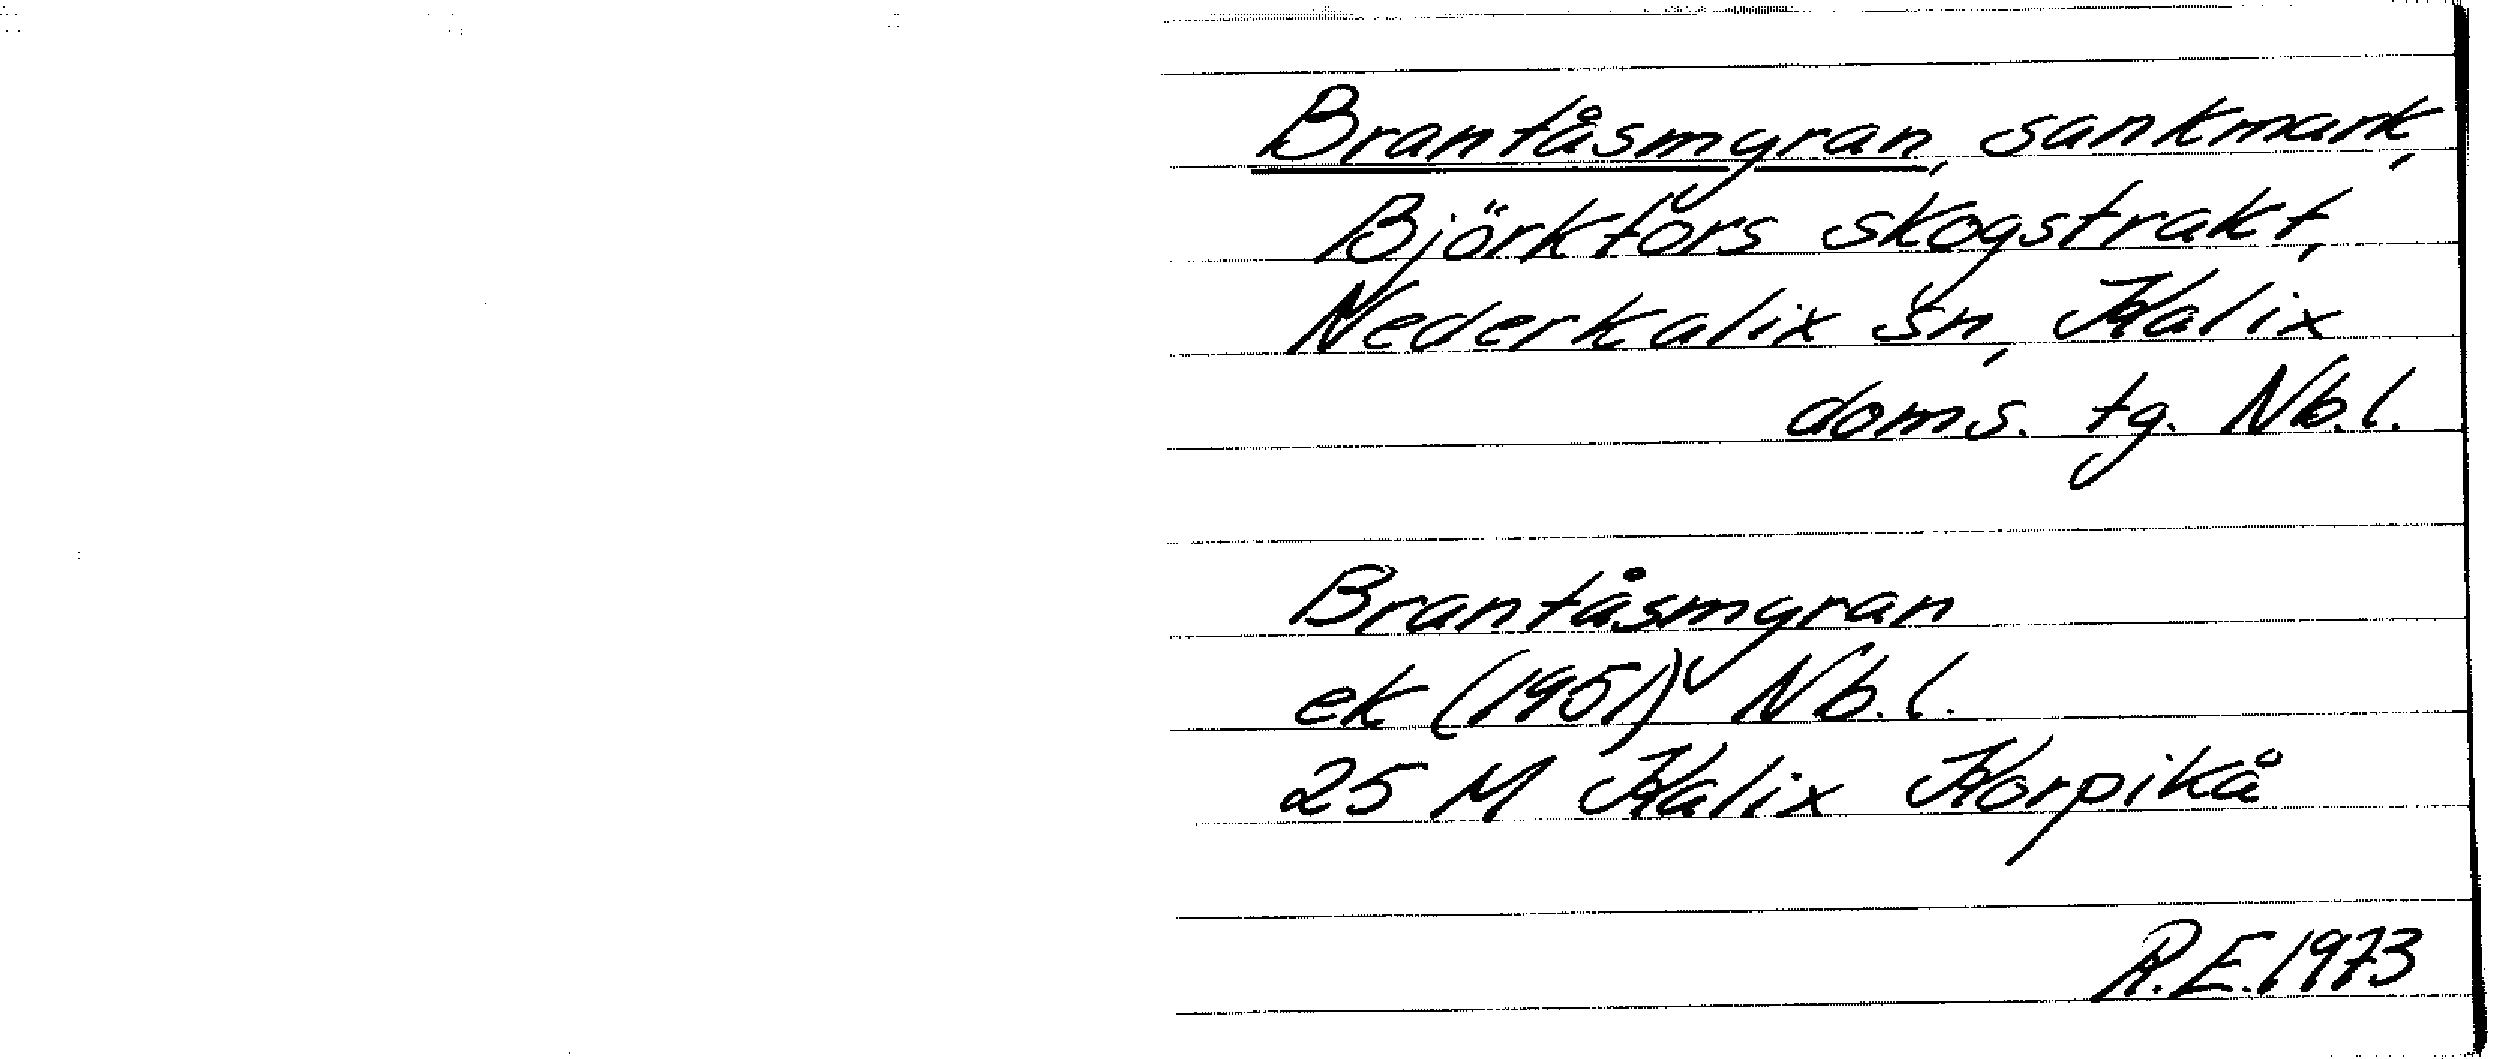 Brantåsmyran, sankmark,
Björkfors skogstrakt,
Nederkalix sn, Kalix
doms. tg. Nb.l.
Brantåsmyran
ek (1951) Nb.l.
25 M Kalix Korpikå
R.E. 1973